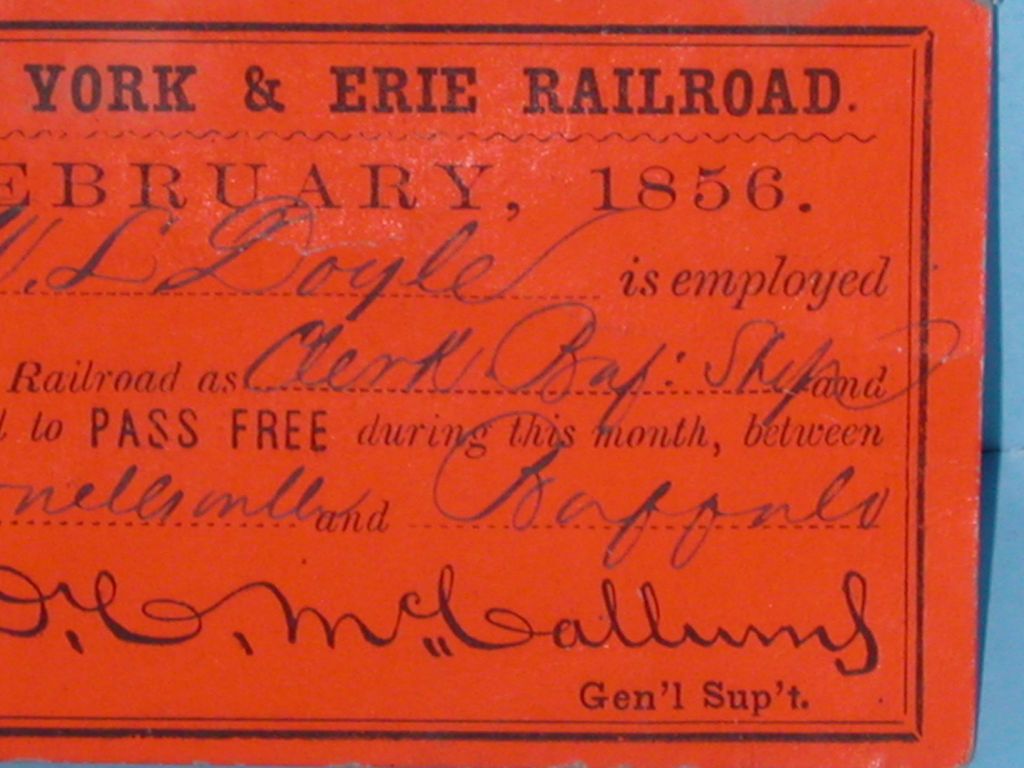 YORK & ERIE RAILROAD.
EBRUARY, 1856.
W. L. Doyle is employed
Railroad as Clerk Buf: Ship and
d to PASS FREE during this month, between
nellsville and Buffalo
D. C. McCallum
Gen'l Sup't.